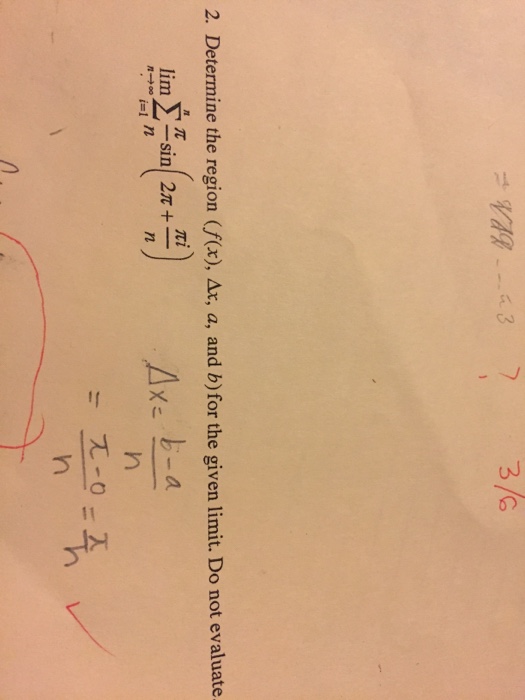 3/6
2. Determine the region (f(x), Δx, a, and b) for the given limit. Do not evaluate.
lim n→∞ Σ i=1 n π/n sin(2π + πi/n)
Δx = b-a/n
= π-0/n = π/n ✓